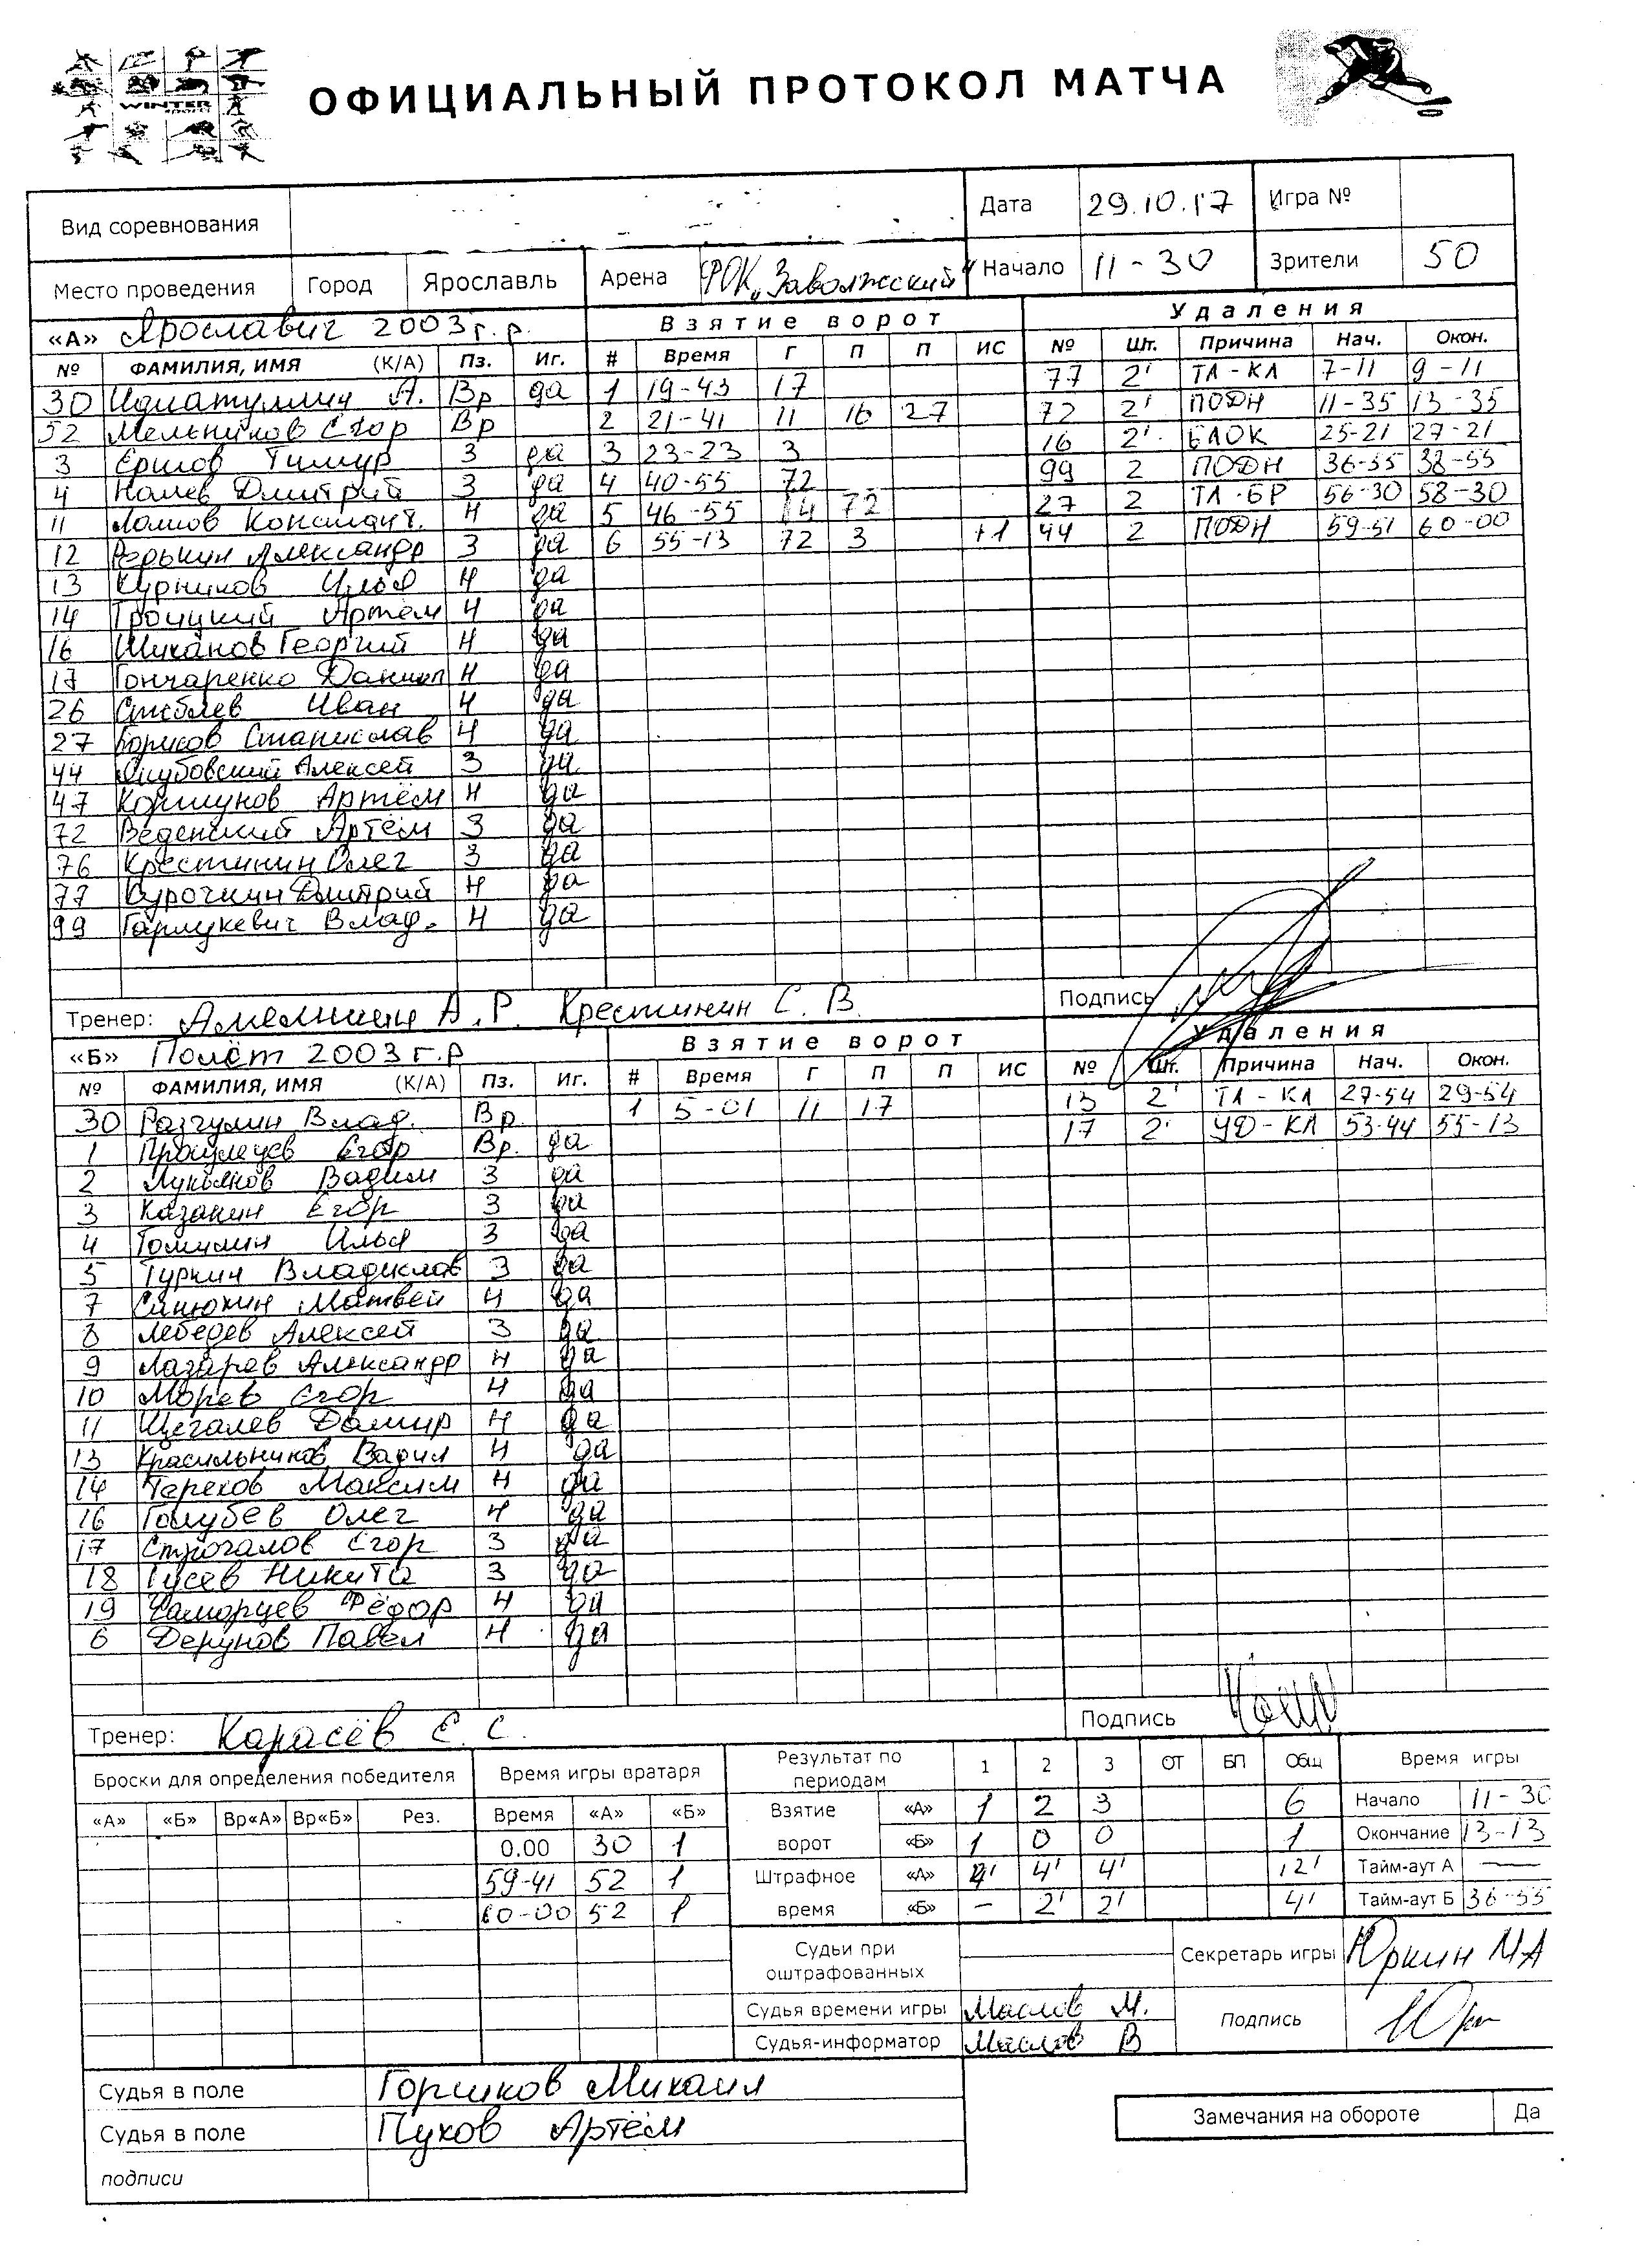 WINTER
ОФИЦИАЛЬНЫЙ ПРОТОКОЛ МАТЧА
Вид соревнования Дата 29.10.17 Игра №
Место проведения Город Ярославль Арена ФОК „Заволжский" Начало 11-30 Зрители 50
«А» Ярославич 2003 г.р. Взятие ворот Удаления
№ ФАМИЛИЯ, ИМЯ (К/А) Пз. Иг. # Время Г П П ИС № Шт. Причина Нач. Окон.
30 А. Вр да 1 19-43 17 77 2' ТЛ-КЛ 7-11 9-11
52 Мельников Егор Вр 2 21-41 11 16 27 72 2' ПОДН 11-35 13-35
3 Ершов Тимур З да 3 23-23 3 16 2' БЛОК 25-21 27-21
4 Дмитрий З да 4 40-55 72 99 2 ПОДН 36-55 38-55
11 Ломов Констант. Н да 5 46-55 14 72 27 2 ТЛ-БР 56-30 58-30
12 Редькин Александр З да 6 55-13 72 3 +1 44 2 ПОДН 59-51 60-00
13 Курников Илья Н да
14 Троицкий Артём Н да
16 Шиханов Георгий Н да
17 Гончаренко Даниил Н да
26 Иван Н да
27 Борисов Станислав Н да
44 Якубовский Алексей З да
47 Коршунов Артём Н да
72 Веденский Артём З да
76 Крестинин Олег З да
77 Курочкин Дмитрий Н да
99 Гармукевич Влад. Н да
Тренер: А.Р. Крестинин С.В. Подпись
«Б» Полёт 2003 г.р Взятие ворот Удаления
№ ФАМИЛИЯ, ИМЯ (К/А) Пз. Иг. # Время Г П П ИС № Шт. Причина Нач. Окон.
30 Разгулин Влад. Вр. 1 5-01 11 17 13 2' ТЛ-КЛ 27-54 29-54
1 Егор Вр. да 17 2' УД-КЛ 53-44 55-13
2 Лукьянов Вадим З да
3 Казакин Егор З да
4 Томилин Илья З да
5 Туркин Владислав З да
7 Синюхин Матвей Н да
8 Лебедев Алексей З да
9 Лазарев Александр Н да
10 Морев Егор Н да
11 Щегалев Домир Н да
13 Красильников Вадим Н да
14 Терехов Максим Н да
16 Голубев Олег Н да
17 Строгалов Егор З да
18 Гусев Никита З да
19 Фёдор Н да
6 Дерунов Павел Н да
Тренер: Карасёв Е. С. Подпись
Броски для определения победителя Время игры вратаря Результат по периодам 1 2 3 ОТ БП Общ Время игры
«А» «Б» Вр«А» Вр«Б» Рез. Время «А» «Б» Взятие «А» 1 2 3 6 Начало 11-30
0.00 30 1 ворот «Б» 1 0 0 1 Окончание 13-13
59-41 52 1 Штрафное «А» 4' 4' 4' 12' Тайм-аут А —
60-00 52 1 время «Б» — 2' 2' 4' Тайм-аут Б 36-55
Судьи при оштрафованных Секретарь игры Юркин МА
Судья времени игры Маслов М. Подпись
Судья-информатор Маслов В
Судья в поле Горшков Михаил
Судья в поле Пухов Артём
Замечания на обороте Да
подписи